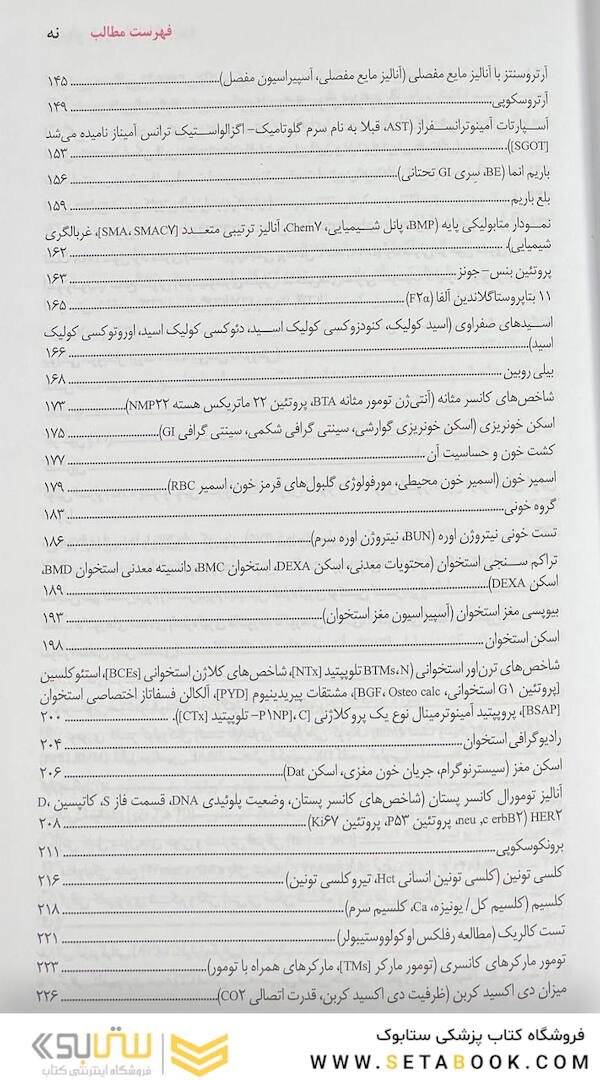 فهرست مطالب نه
آرتروسنتز با آنالیز مایع مفصلی (آنالیز مایع مفصلی، آسپیراسیون مفصل)..........۱۴۵
آرتروسکوپی..........۱۴۹
آسپارتات آمینوترانسفراز (AST، قبلا به نام سرم گلوتامیک- اگزالواستیک ترانس آمیناز نامیده می‌شد
[SGOT])..........۱۵۳
باریم انما (BE، سِری GI تحتانی)..........۱۵۶
بلع باریم..........۱۵۹
نمودار متابولیکی پایه (BMP، پانل شیمیایی، Chem۷، آنالیز ترتیبی متعدد [SMA، SMAC۷]، غربالگری
شیمیایی)..........۱۶۲
پروتئین بنس- جونز..........۱۶۳
۱۱ بتاپروستاگلاندین آلفا (F۲α)..........۱۶۵
اسیدهای صفراوی (اسید کولیک، کنودزوکسی کولیک اسید، دئوکسی کولیک اسید، اوروتوکسی کولیک
اسید)..........۱۶۶
بیلی روبین..........۱۶۸
شاخص‌های کانسر مثانه (آنتی‌ژن تومور مثانه BTA، پروتئین ۲۲ ماتریکس هسته NMP۲۲)..........۱۷۳
اسکن خونریزی (اسکن خونریزی گوارشی، سینتی گرافی شکمی، سینتی گرافی GI)..........۱۷۵
کشت خون و حساسیت آن..........۱۷۷
اسمیر خون (اسمیر خون محیطی، مورفولوژی گلبول‌های قرمز خون، اسمیر RBC)..........۱۷۹
گروه خونی..........۱۸۳
تست خونی نیتروژن اوره (BUN، نیتروژن اوره سرم)..........۱۸۶
تراکم سنجی استخوان (محتویات معدنی، اسکن DEXA، استخوان BMC، دانسیته معدنی استخوان BMD،
اسکن DEXA)..........۱۸۹
بیوپسی مغز استخوان (آسپیراسیون مغز استخوان)..........۱۹۳
اسکن استخوان..........۱۹۸
شاخص‌های ترن‌اور استخوانی (BTMs،N تلوپپتید [NTx]، شاخص‌های کلاژن استخوانی [BCEs]، استئوکلسین
[پروتئین G۱ استخوانی، BGF، Osteo calc، مشتقات پیریدینیوم [PYD]، آلکالن فسفاتاز اختصاصی استخوان
[BSAP]، پروپپتید آمینوترمینال نوع یک پروکلاژنی [P۱NP]، C- تلوپپتید [CTx])..........۲۰۰
رادیوگرافی استخوان..........۲۰۴
اسکن مغز (سیسترنوگرام، جریان خون مغزی، اسکن Dat)..........۲۰۶
آنالیز تومورال کانسر پستان (شاخص‌های کانسر پستان، وضعیت پلوئیدی DNA، قسمت فاز S، کاتپسین D،
HER۲ (neu ,c erbB۲، پروتئین P۵۳، پروتئین Ki۶۷)..........۲۰۸
برونکوسکوپی..........۲۱۱
کلسی تونین (کلسی تونین انسانی Hct، تیروکلسی تونین)..........۲۱۶
کلسیم (کلسیم کل/ یونیزه، Ca، کلسیم سرم)..........۲۱۸
تست کالریک (مطالعه رفلکس اوکولووستیبولر)..........۲۲۱
تومور مارکرهای کانسری (تومور مارکر [TMs]، مارکرهای همراه با تومور)..........۲۲۳
میزان دی اکسید کربن (ظرفیت دی اکسید کربن، قدرت اتصالی CO۲)..........۲۲۶
فروشگاه کتاب پزشکی ستابوک
WWW.SETABOOK.COM
ستابوک
فروشگاه اینترنتی کتاب